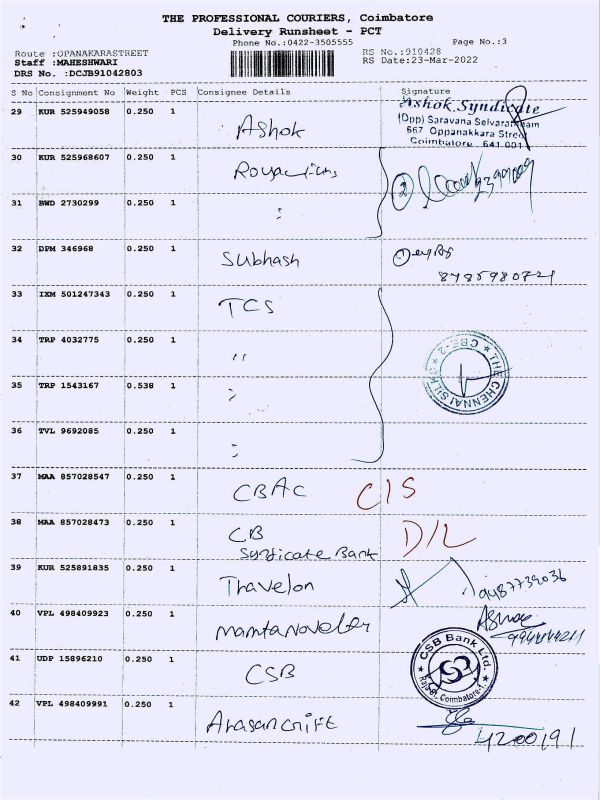 THE PROFESSIONAL COURIERS, Coimbatore
Delivery Runsheet - PCT
Phone No.:0422-3505555 Page No.:3
Route :OPANAKARASTREET RS No.:910428
Staff :MAHESHWARI RS Date:23-Mar-2022
DRS No. :DCJB91042803
S No Consignment No Weight PCS Consignee Details Signature
29 KUR 525949058 0.250 1 Ashok
Ashok Syndicate
(Opp) Saravana Selvarathnam
667 Oppanakkara Street
Coimbatore 641 001
30 KUR 525968607 0.250 1
31 BWD 2730299 0.250 1 :
32 DPM 346968 0.250 1 Subhash
8785980721
33 IXM 501247343 0.250 1 TCS
34 TRP 4032775 0.250 1 "
THE CHENNAI SILKS CBE-2
35 TRP 1543167 0.538 1
36 TVL 9692085 0.250 1 :
37 MAA 857028547 0.250 1 CBAC C/S
38 MAA 857028473 0.250 1 CB D/L
Syndicate Bank
39 KUR 525891835 0.250 1 Thavelon 9487739036
40 VPL 498409923 0.250 1
41 UDP 15896210 0.250 1 CSB
CSB Bank Ltd. Coimbatore-1.
42 VPL 498409991 0.250 1
4200191